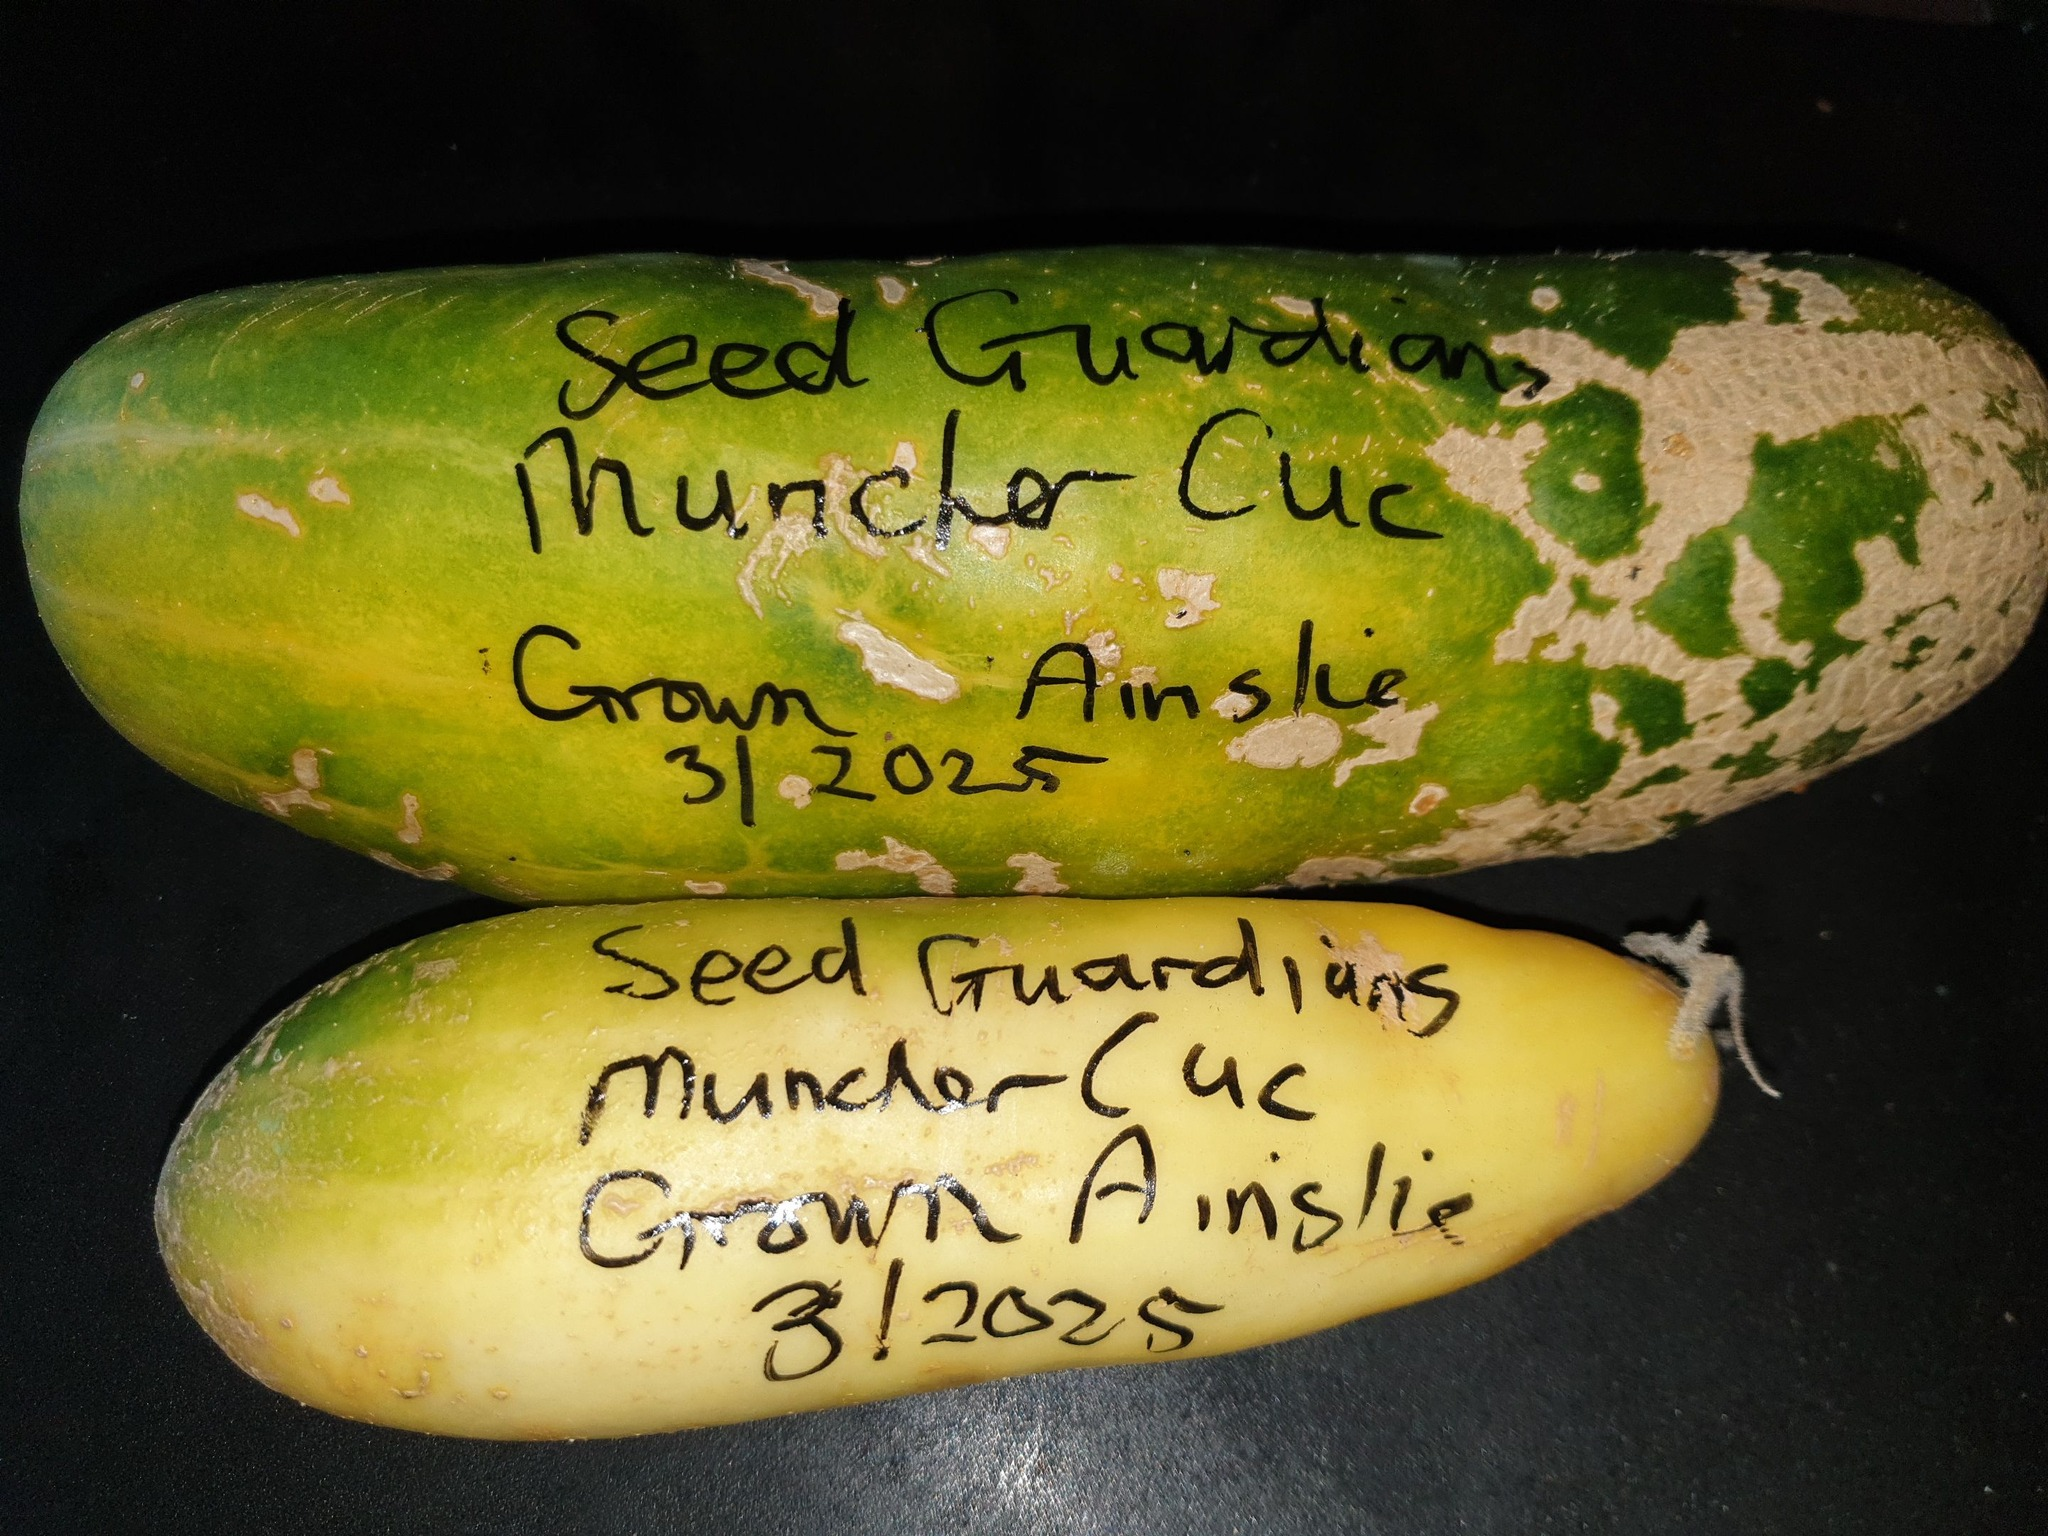 Seed Guardians
Muncher Cuc
Grown Ainslie
3/2025
Seed Guardians
Muncher Cuc
Grown Ainslie
3/2025